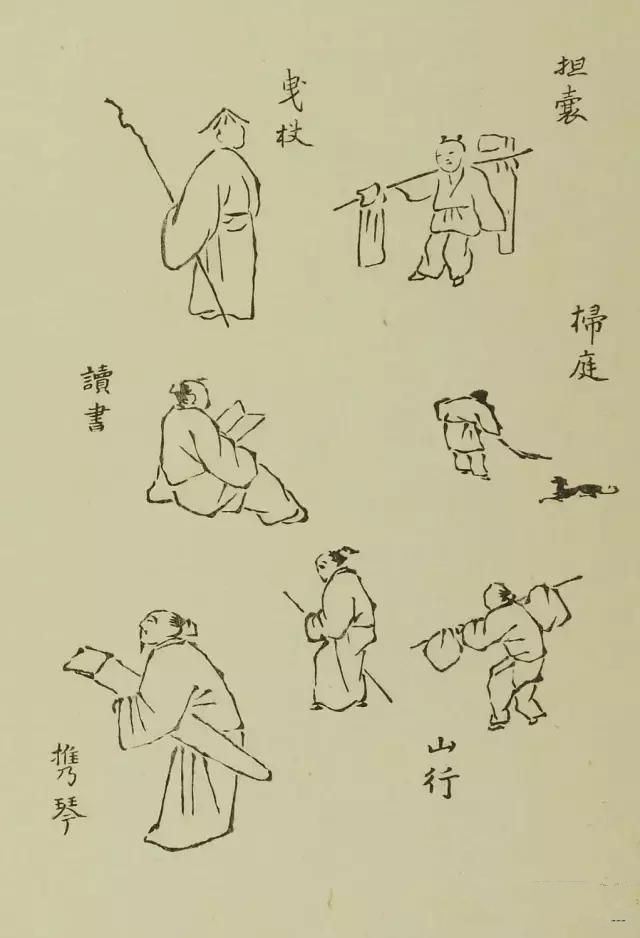 担囊
曳杖
掃庭
讀書
山行
携琴